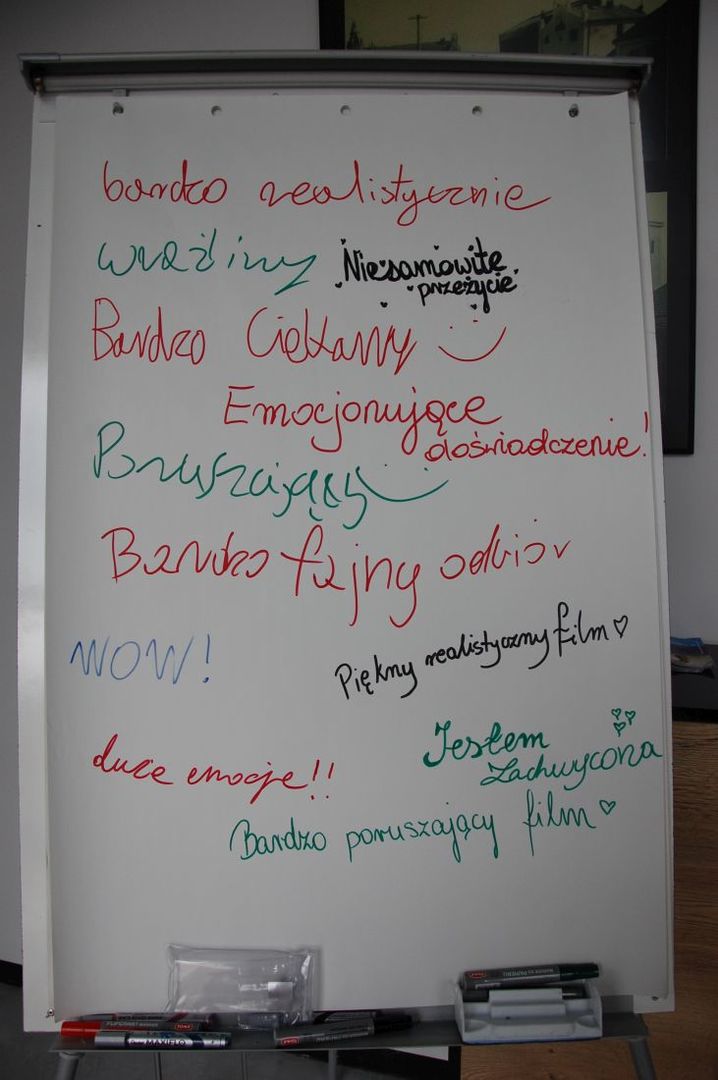 bardzo realistycznie
wrażliwy
Niesamowite
przeżycie
Bardzo Ciekawy
Emocjonujące
doświadczenie!
Poruszający
Bardzo fajny odbiór
WOW!
Piękny realistyczny film
duże emocje!!
Jestem
zachwycona
Bardzo poruszający film
MAXIFLO